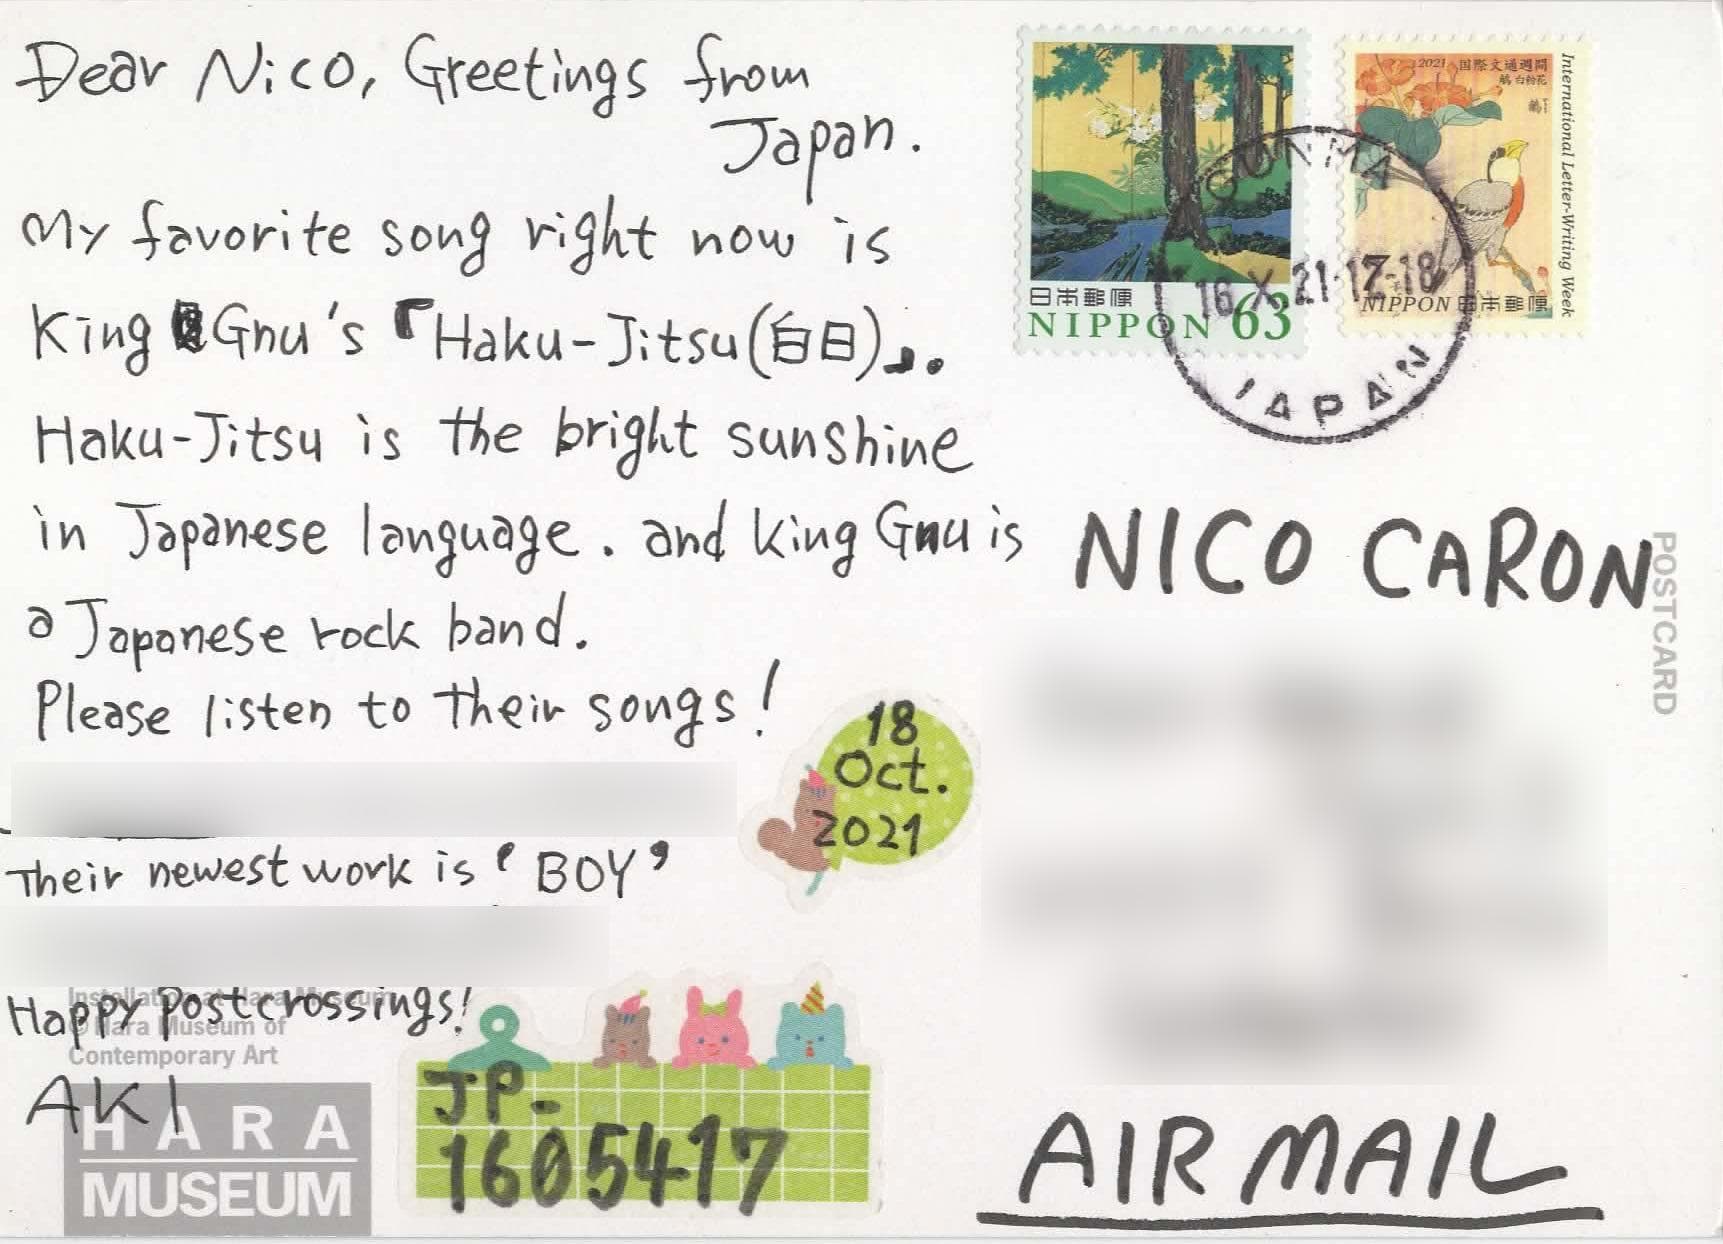 Dear Nico, Greetings from
Japan.
My favorite song right now is
King Gnu's『Haku-Jitsu(白日)』.
Haku-Jitsu is the bright sunshine
in Japanese language. and King Gnu is
a Japanese rock band.
Please listen to their songs!
18
Oct.
2021
Their newest work is 'BOY'
Happy Postcrossings!
AKI
Installation at Hara Museum
© Hara Museum of
Contemporary Art
HARA
MUSEUM
JP-
1605417
日本郵便
NIPPON 63
2021 国際文通週間
International Letter-Writing Week
NIPPON 日本郵便
GUNMA
16.X.21.17-18
JAPAN
NICO CARON
POSTCARD
AIR MAIL